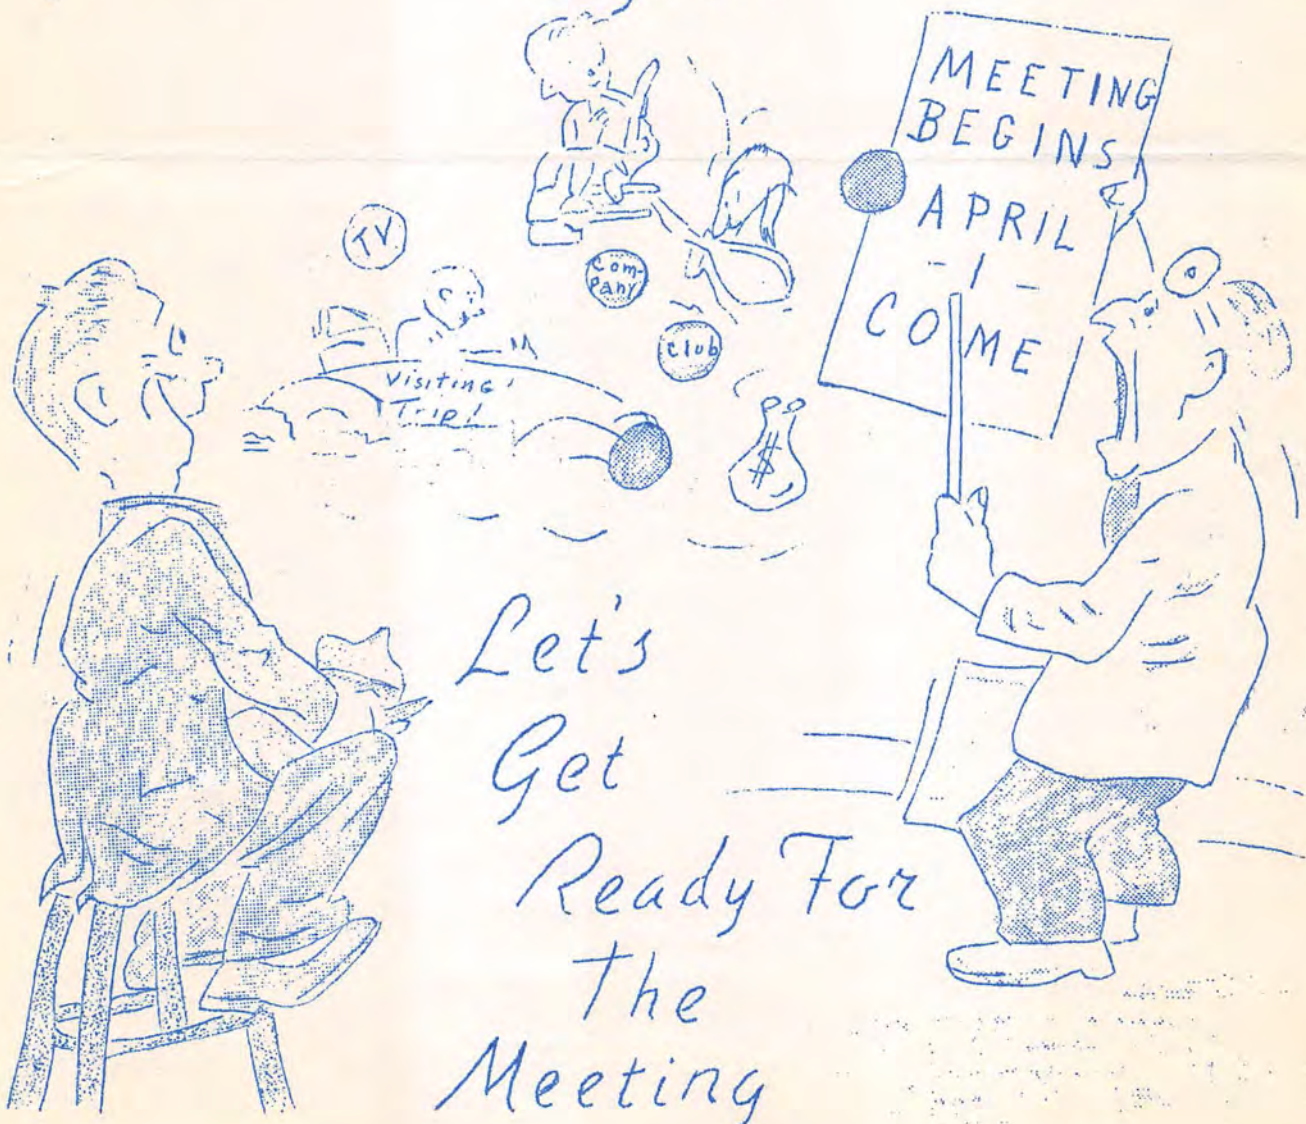 MEETING
BEGINS
APRIL
- 1 -
COME
TV
Com-
pany
Club
Visiting
Trip!
$
Let's
Get
Ready For
The
Meeting